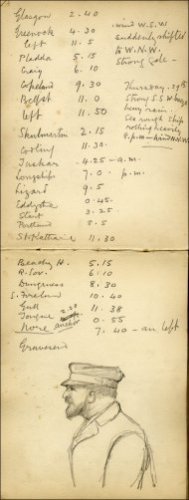 Glasgow 2.40
Greenock 4.30 wind W.S.W
left 11.5 suddenly shifted
Pladda 5.15 to W.N.W.
Craig 6.10 Strong gale
Copeland 9.30 Thursday. 29th
Belfast 11.0 Strong S.S.W breeze
left 11.50 heavy rain.
Sea rough ship
Skulmartin 2.15 rolling heavily
11.30 9. p.m
Tuskar 4.25 a.m.
Longships 7.0 p.m.
Lizard 9.5
Eddystone 0.45
Start 3.25
Portland 5.5
St. Katherine 11.30
Beachy H. 5.15
R. Sov. 6.10
Dungeness 8.30
S. Foreland 10.40
Gull 11.38
Tongue 0.55
Nore anchor 7.40 left
Gravesend